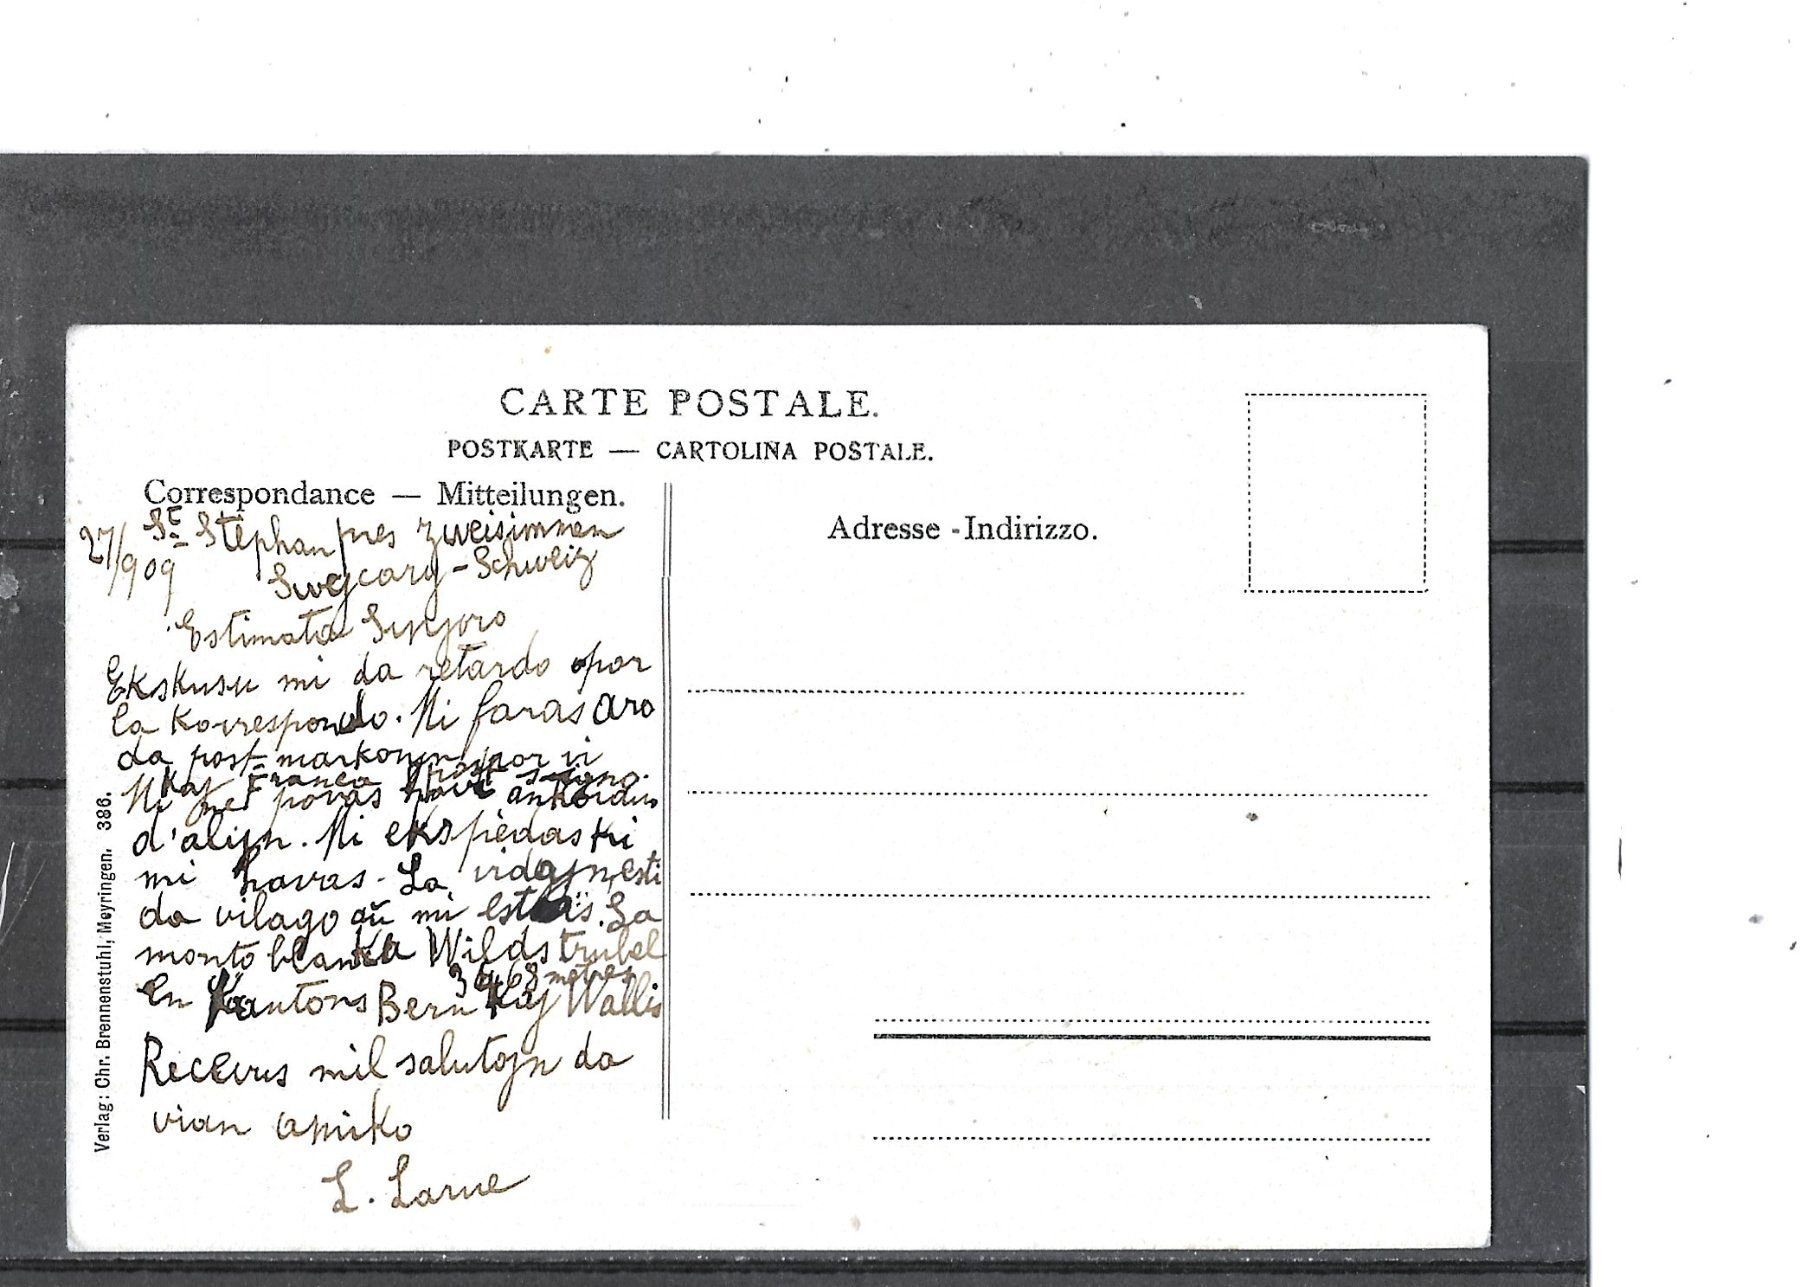 CARTE POSTALE.
POSTKARTE — CARTOLINA POSTALE.
Correspondance — Mitteilungen.
Adresse - Indirizzo.
27/9 09
St Stephan pres Zweisimmen
Swejcary - Schweiz
Estimata Sinjoro
Ekskusu mi da retardo por
la korrespondo. Mi faras aro
da post-markojn por vi
kaj Franca post signo.
Mi ne povas
d'alijn. Mi ekspedas ki
mi havas. La vidajn esti
da vilago aŭ mi estas. La
monto blanka Wildstrubel
3468 metres
en Kantons Bern kaj Wallis
Recevus mil salutojn da
vian amiko
L. Larue
Verlag: Chr. Brennenstuhl, Meyringen. 386.